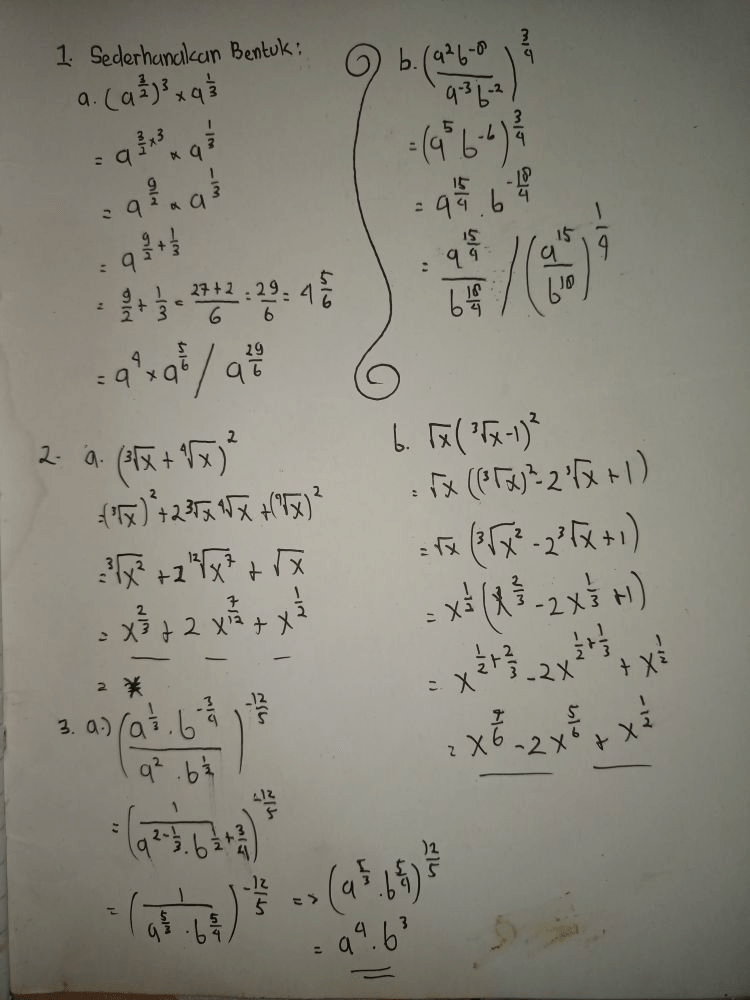 1. Sederhanakan Bentuk:
a. (a^(3/2))^3 × a^(1/3)
= a^(3/2 × 3) × a^(1/3)
= a^(9/2) × a^(1/3)
= a^(9/2 + 1/3)
= 9/2 + 1/3 = (27+2)/6 = 29/6 = 4 5/6
= a^4 × a^(5/6) / a^(29/6)
b. ((a^2 b^-8)/(a^-3 b^-2))^(3/4)
= (a^5 b^-6)^(3/4)
= a^(15/4) . b^(-18/4)
= a^(15/4)/b^(18/4) / (a^15/b^18)^(1/4)
2. a. (³√x + ⁴√x)^2
= (³√x)^2 + 2 ³√x ⁴√x + (⁴√x)^2
= ³√x^2 + 2 ¹²√x^7 + √x
= x^(2/3) + 2 x^(7/12) + x^(1/2)
=
b. √x (³√x - 1)^2
= √x ((³√x)^2 - 2 ³√x + 1)
= √x (³√x^2 - 2 ³√x + 1)
= x^(1/2) (x^(2/3) - 2x^(1/3) + 1)
= x^(1/2 + 2/3) - 2x^(1/2 + 1/3) + x^(1/2)
= x^(7/6) - 2x^(5/6) + x^(1/2)
3. a.) ((a^(1/3) . b^(-3/4))/(a^2 . b^(1/2)))^(-12/5)
= (1/(a^(2 - 1/3) . b^(1/2 + 3/4)))^(-12/5)
= (1/(a^(5/3) . b^(5/4)))^(-12/5) => (a^(5/3) . b^(5/4))^(12/5)
= a^4 . b^3